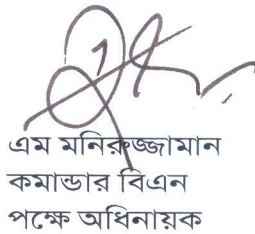 এম মনিরুজ্জামান
কমান্ডার বিএন
পক্ষে অধিনায়ক